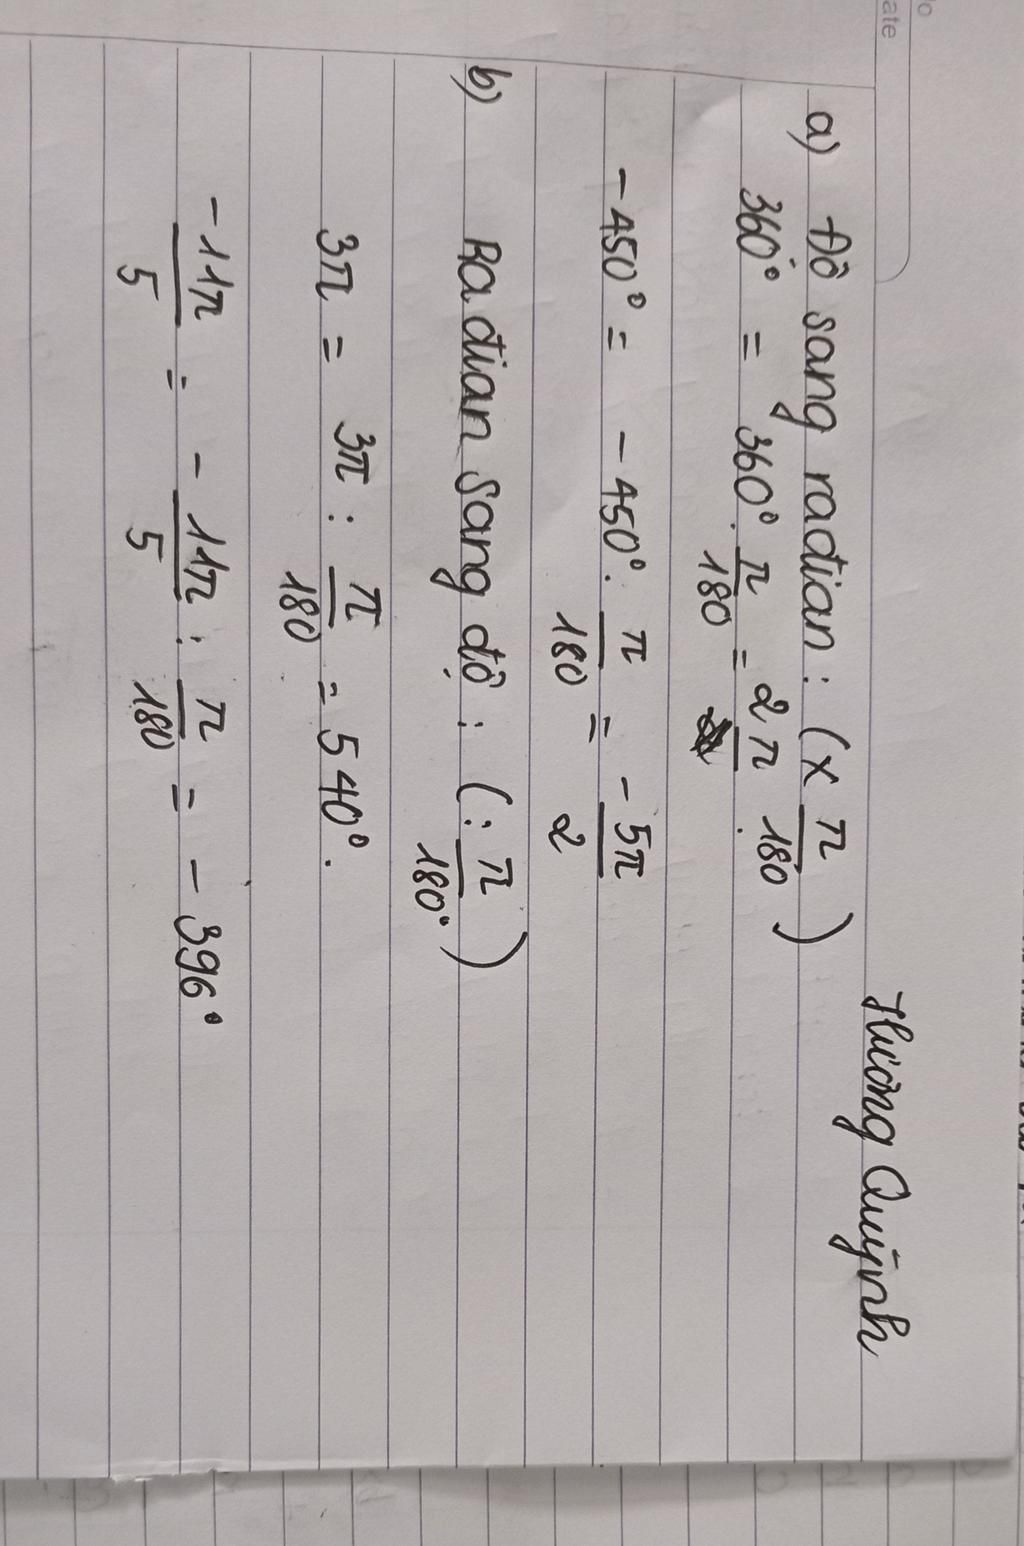 Thương Quỳnh
a) Độ sang rađian: (x π/180)
360° = 360° . π/180 = 2π.
-450° = -450° . π/180 = -5π/2
b) Rađian sang độ: (: π/180°)
3π = 3π : π/180 = 540°.
-11π/5 = -11π/5 : π/180 = -396°